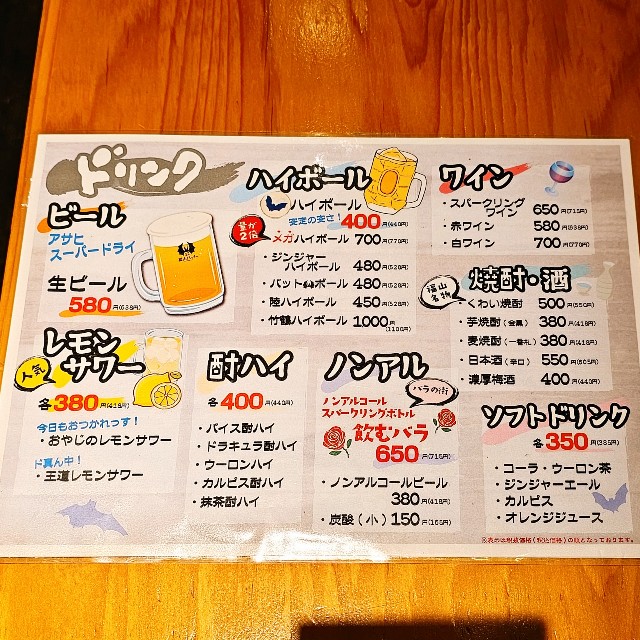 ドリンク
ビール
アサヒ
スーパードライ
生ビール
580円(638円)
レモン
サワー
人気
各380円(418円)
今日もおつかれっす!
・おやじのレモンサワー
ド真ん中!
・王道レモンサワー
ハイボール
ハイボール
安定の安さ! 400円(440円)
量が
2倍
・メガハイボール 700円(770円)
・ジンジャー
ハイボール 480円(528円)
・バットボール 480円(528円)
・陸ハイボール 450円(528円)
・竹鶴ハイボール 1,000円
(1100円)
酎ハイ
各400円(440円)
・バイス酎ハイ
・ドラキュラ酎ハイ
・ウーロンハイ
・カルピス酎ハイ
・抹茶酎ハイ
ノンアル
バラの街
ノンアルコール
スパークリングボトル
飲むバラ
650円(715円)
・ノンアルコールビール
380円(418円)
・炭酸(小)150円(165円)
ワイン
・スパークリング
ワイン 650円(715円)
・赤ワイン 580円(638円)
・白ワイン 700円(770円)
焼酎・酒
福山
名物
・くわい焼酎 500円(550円)
・芋焼酎(金黒) 380円(418円)
・麦焼酎(一番札) 380円(418円)
・日本酒(辛口) 550円(605円)
・濃厚梅酒 400円(440円)
ソフトドリンク
各350円(385円)
・コーラ・ウーロン茶
・ジンジャーエール
・カルピス
・オレンジジュース
※表示は税抜価格(税込価格)の順となっております。